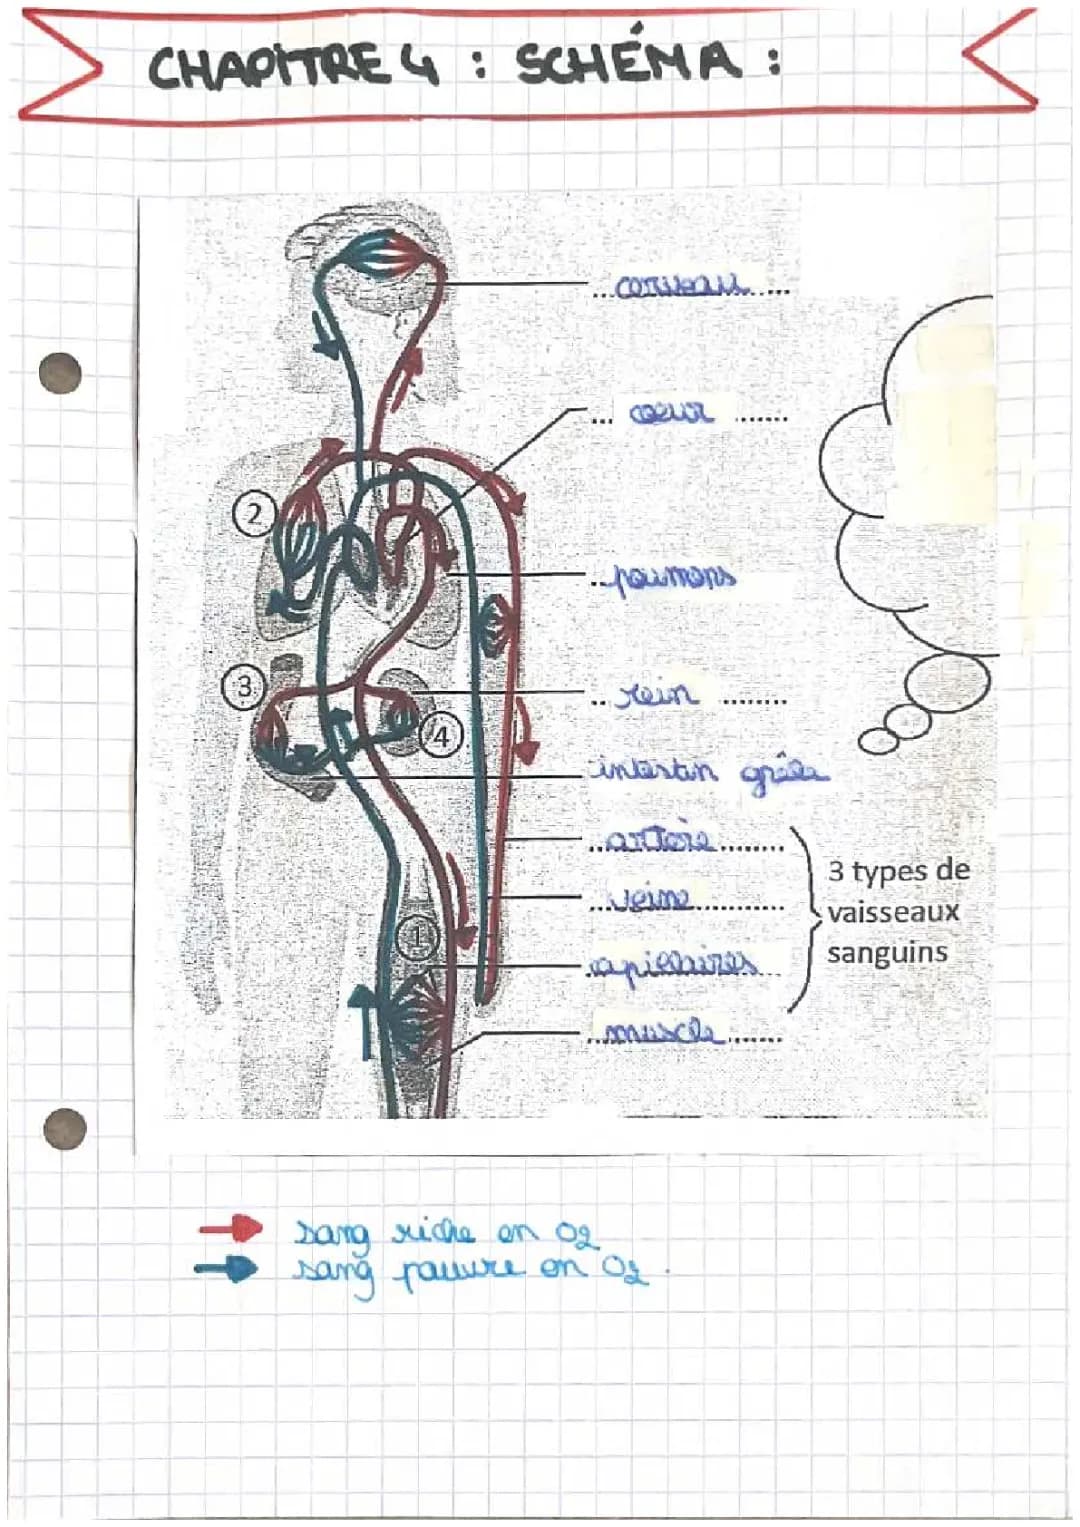 CHAPITRE 4 : SCHÉMA :
cerveau
coeur
2
poumons
3
rein
4
intestin grêle
artère
3 types de
veine
vaisseaux
1
sanguins
capillaires
muscle
sang riche en O2
sang pauvre en O2.